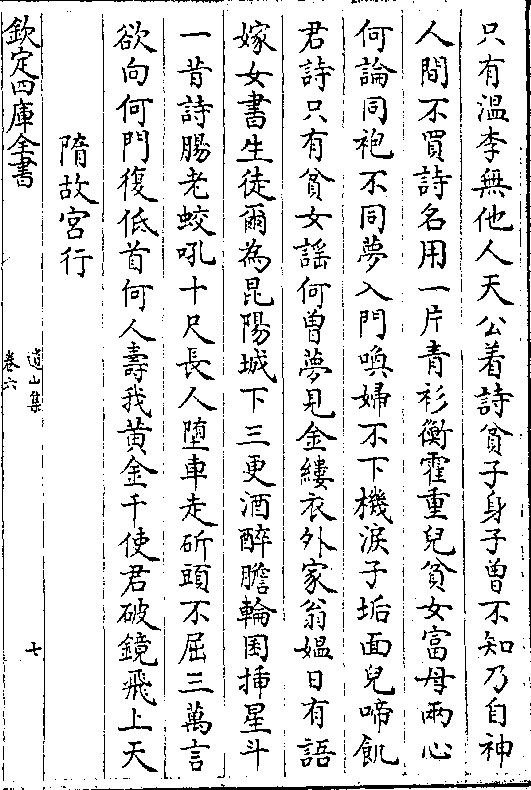 只有溫李無他人天公着詩貧子身子曾不知乃自神
人間不買詩名用一片青衫衡霍重兒貧女富母兩心
何論同袍不同夢入門喚婦不下機淚子垢面兒啼飢
君詩只有貧女謡何曽夢見金縷衣外家翁媪日有語
嫁女書生徒爾為昆陽城下三更酒醉膽輪囷揷星斗
一昔詩腸老蛟吼十尺長人堕車走斫頭不屈三萬言
欲向何門復低首何人壽我黃金千使君破鏡飛上天
隋故宮行
欽定四庫全書
遺山集
卷六
七